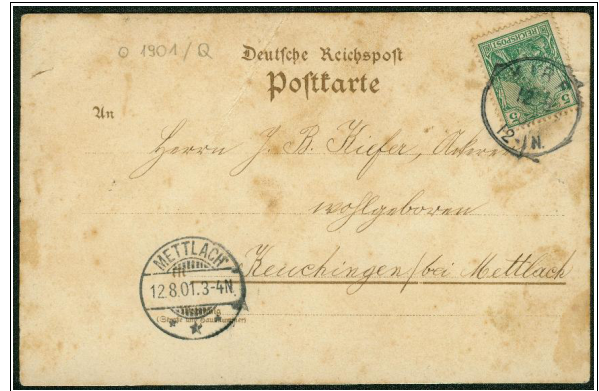 o 1901/Q
Deutsche Reichspost
Postkarte
REICHSPOST
5 5
12-1N.
An
Herrn J. B. Kiefer,
wohlgeboren
Keuchingen/bei Mettlach
METTLACH
12.8.01.3-4N.